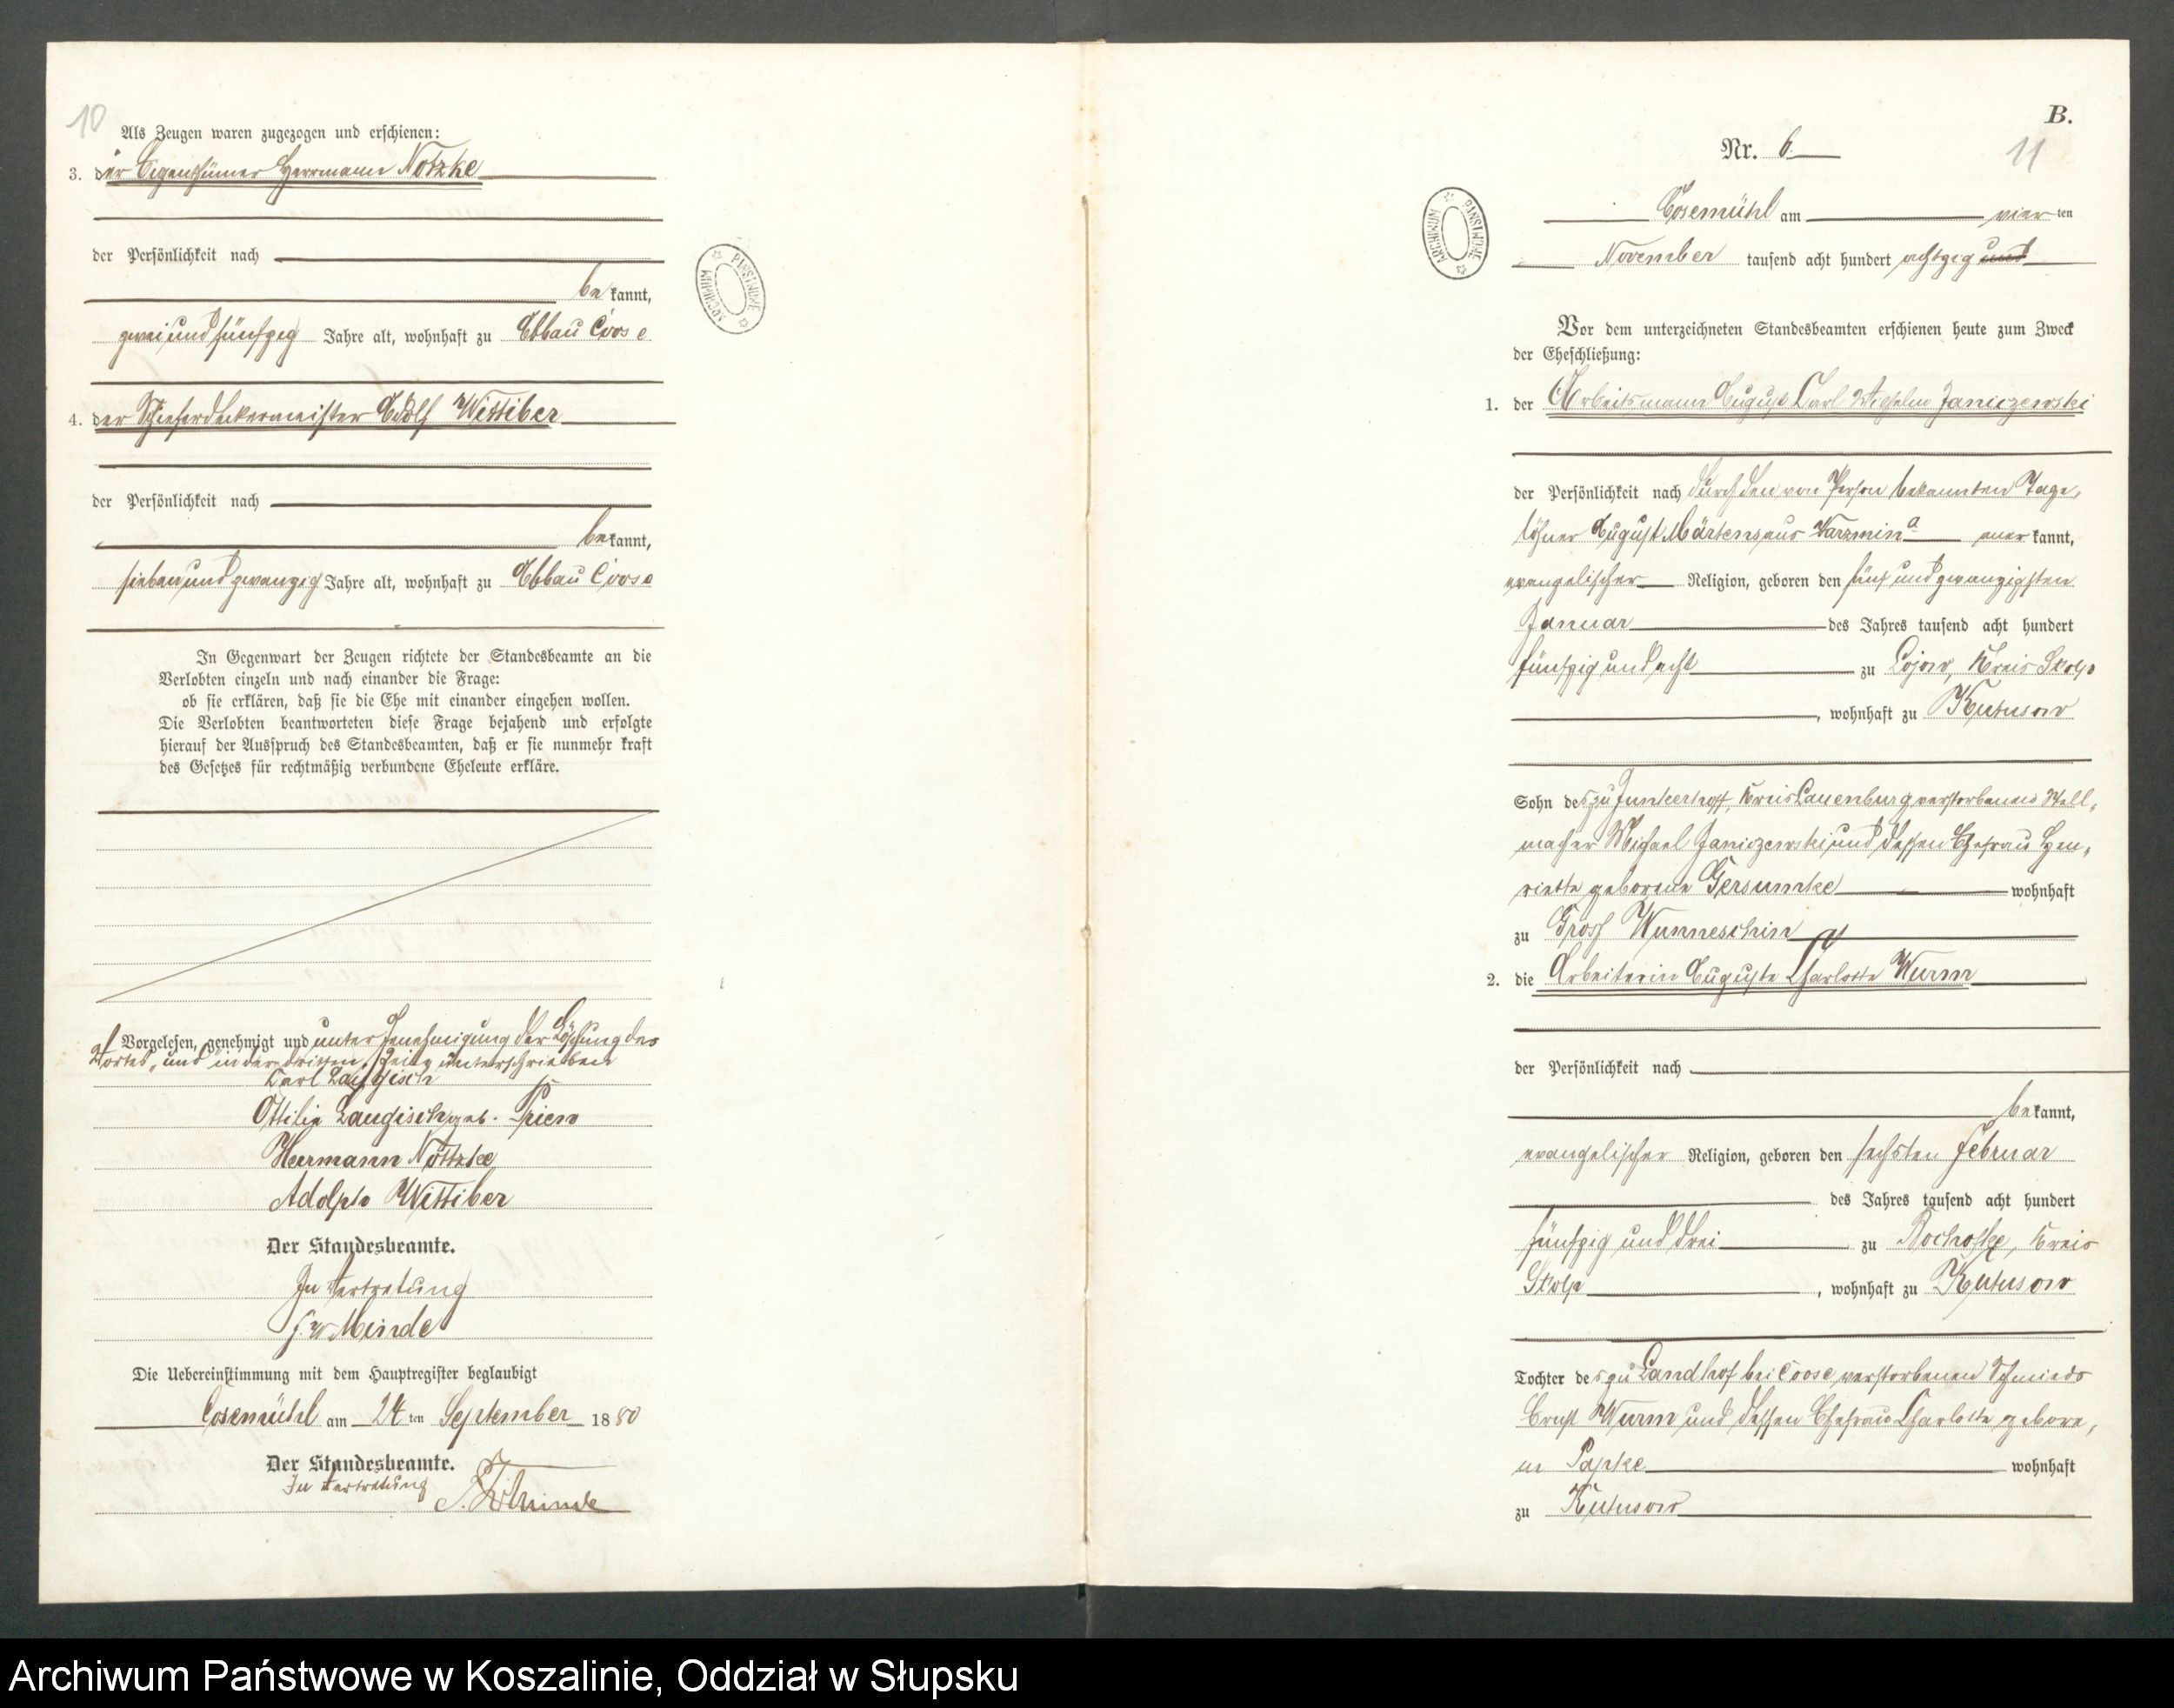 10
Als Zeugen waren zugezogen und erschienen:
3. der Eigenthümer Herrmann Notzke
der Persönlichkeit nach
bekannt,
zwei und fünfzig Jahre alt, wohnhaft zu Abbau Coose
4. der Schieferdeckermeister Adolf Wittiber
der Persönlichkeit nach
bekannt,
sieben und zwanzig Jahre alt, wohnhaft zu Abbau Coose
In Gegenwart der Zeugen richtete der Standesbeamte an die
Verlobten einzeln und nach einander die Frage:
ob sie erklären, daß sie die Ehe mit einander eingehen wollen.
Die Verlobten beantworteten diese Frage bejahend und erfolgte
hierauf der Ausspruch des Standesbeamten, daß er sie nunmehr kraft
des Gesetzes für rechtmäßig verbundene Eheleute erkläre.
Vorgelesen, genehmigt und unter Genehmigung der Löschung des
Wortes „und in der dritten Zeile unterschrieben
Carl Laudisch
Ottilie Laudisch geb. Spiew
Herrmann Nottzke
Adolph Wittiber
Der Standesbeamte.
In Vertretung
F. W Minde
Die Uebereinstimmung mit dem Hauptregister beglaubigt
Cosemühl am 24 ten September 1880
Der Standesbeamte.
In Vertretung
F. W Minde
ARCHIWUM PAŃSTWOWE
B.
Nr. 6
11
ARCHIWUM PAŃSTWOWE
Cosemühl am vier ten
November tausend acht hundert achtzig und
Vor dem unterzeichneten Standesbeamten erschienen heute zum Zweck
der Eheschließung:
1. der Arbeitsmann August Carl Wilhelm Janiczewski
der Persönlichkeit nach durch den von Person bekannten Tage-
löhner August Märtens aus Warzmin a anerkannt,
evangelischer Religion, geboren den fünf und zwanzigsten
Januar des Jahres tausend acht hundert
fünfzig und acht zu Lojow, Kreis Stolp
, wohnhaft zu Kutusow
Sohn des zu Junkerhoff, Kreis Lauenburg verstorbenen Stell-
macher Michael Janiczewski und dessen Ehefrau Hen-
riette geborene Gersumke wohnhaft
zu Gross Wunneschin
2. die Arbeiterin Auguste Charlotte Wurm
der Persönlichkeit nach
bekannt,
evangelischer Religion, geboren den sechsten Februar
des Jahres tausend acht hundert
fünfzig und drei zu Rochofke, Kreis
Stolp, wohnhaft zu Kutusow
Tochter des zu Landhof bei Coose verstorbenen Schmieds
Ernst Wurm und dessen Ehefrau Charlotte gebore-
ne Papke wohnhaft
zu Kutusow
Archiwum Państwowe w Koszalinie, Oddział w Słupsku